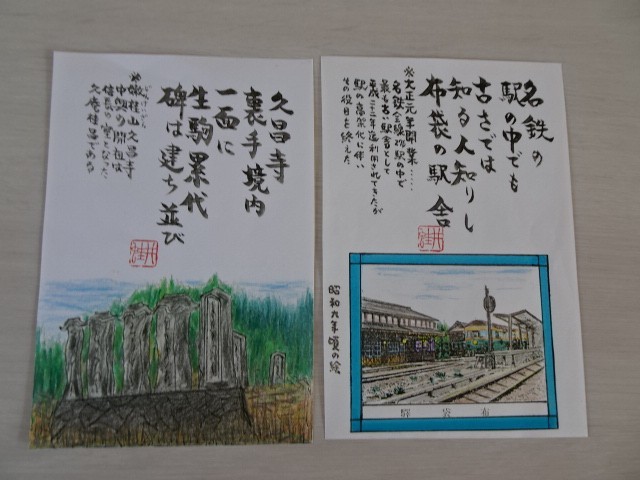 久昌寺
裏手境内
一面に
生駒累代
碑は建ち並び
※嫩桂山久昌寺
中興の開祖は
信長の室となった
久庵桂昌である
名鉄の
駅の中でも
古さでは
知る人知りし
布袋の駅舎
※大正元年開業……
名鉄全線の駅の中で
最も古い駅舎として
平成二十二年迄利用されてきたが
駅の高架化に伴い
その役目を終した
昭和九年頃の絵
驛袋布